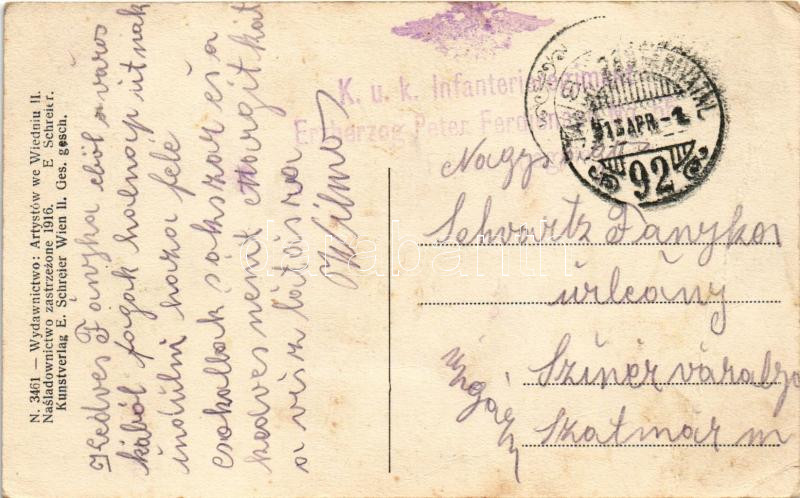 N. 3461 — Wydawnictwo: Artystów we Wiedniu II.
Naśladownictwo zastrzeżone 1916. E Schreier.
Kunstverlag E. Schreier Wien II. Ges. gesch.
Kedves Fányka eböl a város
kából fogok holnap utnak
indulni haza felé
csokollak sokszor és a
kedves nénit Margitkát
a visz látásra
Vilmos
K. u. k. Infanterieregiment
Erzherzog Peter Ferdinand
13 APR
92
Nagys
Schvartz Fányka
úrleány
Szinérváralja
Szatmár m
Ungarn
darabanth